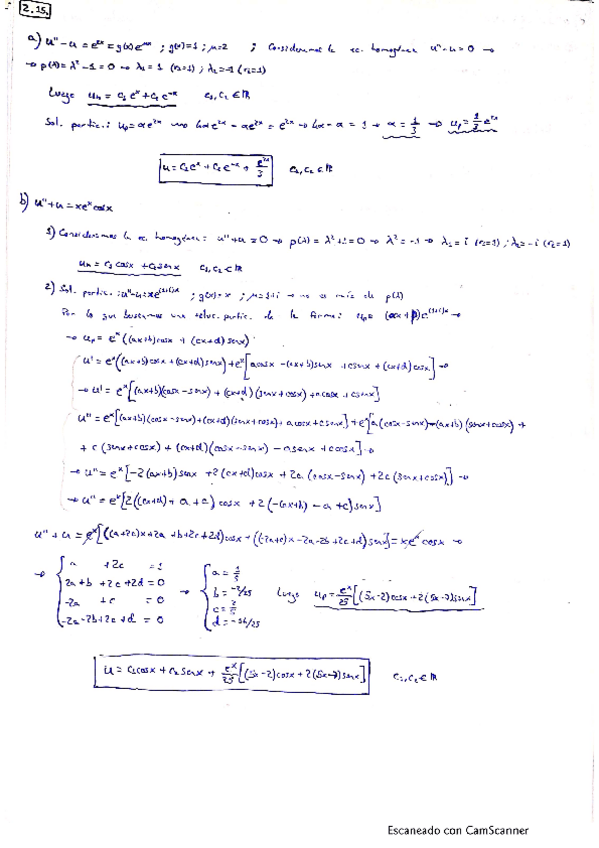 2.15.
a) u'' - u = e^{2x} = g(x)e^{μx} ; g(x)=1 ; μ=2 ; Consideramos la ec. homogénea u'' - u = 0 →
→ p(λ) = λ² - 1 = 0 → λ₁ = 1 (r₁=1) ; λ₂ = -1 (r₂=1)
Luego u_h = c₁e^x + c₂e^{-x} c₁, c₂ ∈ ℝ
Sol. partic.: u_p = αe^{2x} → 4αe^{2x} - αe^{2x} = e^{2x} → 4α - α = 1 → α = 1/3 → u_p = 1/3 e^{2x}
u = c₁e^x + c₂e^{-x} + e^{2x}/3 c₁, c₂ ∈ ℝ
b) u'' + u = xe^x cosx
1) Consideramos la ec. homogénea: u'' + u = 0 → p(λ) = λ² + 1 = 0 → λ² = -1 → λ₁ = i (r₁=1) ; λ₂ = -i (r₂=1)
u_h = c₁ cosx + c₂ senx c₁, c₂ ∈ ℝ
2) Sol. partic.: u'' - u = xe^{(1+i)x} ; g(x) = x ; μ = 1+i → no es raíz de p(λ)
Por lo que buscamos una soluc. partic. de la forma: u_p = (αx+β)e^{(1+i)x} →
→ u_p = e^x((ax+b)cosx + (cx+d)senx)
u' = e^x((ax+b)cosx + (cx+d)senx) + e^x[acosx - (ax+b)senx + csenx + (cx+d)cosx] →
→ u' = e^x[(ax+b)(cosx - senx) + (cx+d)(senx + cosx) + acosx + csenx]
u'' = e^x[(ax+b)(cosx - senx) + (cx+d)(senx + cosx) + acosx + csenx] + e^x[a(cosx - senx) - (ax+b)(senx + cosx) +
+ c(senx + cosx) + (cx+d)(cosx - senx) - asenx + ccosx] →
→ u'' = e^x[-2(ax+b)senx + 2(cx+d)cosx + 2a(cosx - senx) + 2c(senx + cosx)] →
→ u'' = e^x[2((cx+d) + a + c)cosx + 2(-(ax+b) - a + c)senx]
u'' + u = e^x[((a+2c)x + 2a + b + 2c + 2d)cosx + ((-2a+c)x - 2a - 2b + 2c + d)senx] = xe^x cosx →
→ { a + 2c = 1 → { a = 1/5
2a + b + 2c + 2d = 0 b = -2/25
-2a + c = 0 c = 2/5
-2a - 2b + 2c + d = 0 d = -14/25
Luego u_p = e^x/25 [(5x-2)cosx + 2(5x-7)senx]
u = c₁cosx + c₂senx + e^x/25 [(5x-2)cosx + 2(5x-7)senx] c₁, c₂ ∈ ℝ
Escaneado con CamScanner